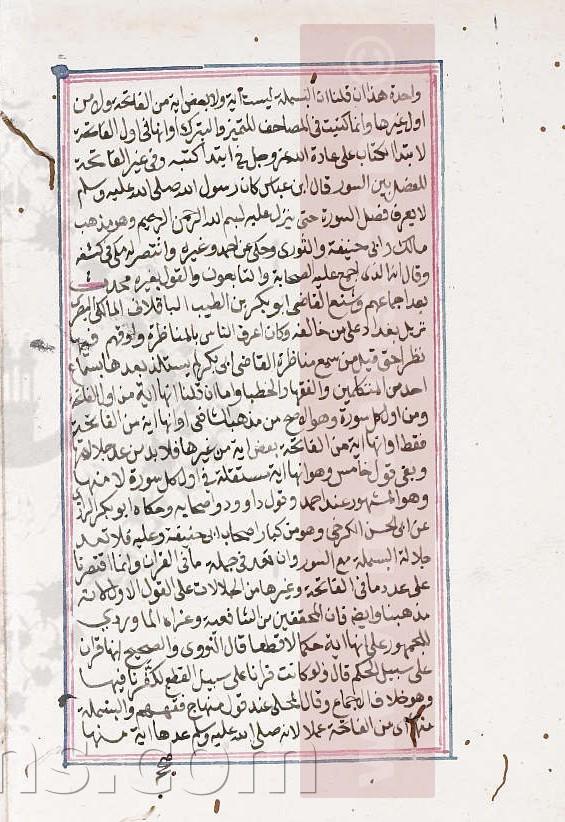 واحدة هذا ان قلنا ان البسملة ليست اية ولا بعض اية من الفاتحة ولا من
اول غيرها وانما كتبت في المصاحف للتميز والتبرك او انها في اول الفاتحة
لابتداء الكتاب على عادة الله عز وجل في ابتداء كتبه وفي غير الفاتحة
للفصل بين السور قال ابن عباس كان رسول الله صلى الله عليه وسلم
لا يعرف فصل السورة حتى ينزل عليه بسم الله الرحمن الرحيم وهو مذهب
مالك وابي حنيفة والثوري وحكي عن احمد وغيره وانتصر له مكي في كشفه
وقال انه الذي اجمع عليه الصحابة والتابعون والقول بغيره محدث
بعد اجماعهم وشنع القاضي ابو بكر بن الطيب الباقلاني المالكي البصري
نزيل بغداد على من خالفه وكان اعرف الناس بالمناظرة وادقهم فيها
نظرا حتى قيل من سمع مناظرة القاضي ابي بكر لم يستلذ بعدها بسماع
احد من المتكلمين والفقهاء والخطباء واما ان قلنا انها اية من اول الفاتحة
ومن اول كل سورة وهو الاصح من مذهب الشافعي او انها اية من الفاتحة
فقط او انها اية من الفاتحة بعض اية من غيرها فلا بد من عد جلالتها
وبقي قول خامس وهو انها اية مستقلة في اول كل سورة لا منها
وهو المشهور عند احمد وقول داوود واصحابه وحكاه ابو بكر الرازي
عن ابي الحسن الكرخي وهو من كبار اصحاب ابي حنيفة وعليه فلا تعد
جلالة البسملة مع السور وان تعد في جملة ما في القران وانما اقتصرنا
على عدد ما في الفاتحة وغيرها من الجلالات على القول الاول لانه
مذهبنا وايضا فان المحققين من الشافعية وعزاه الماوردي
للجمهور على انها اية حكما لا قطعا قال النووي والصحيح انها قران
على سبيل الحكم قال ولو كانت قرانا على سبيل القطع لكفر نافيها
وهو خلاف الاجماع وقال المحلى عند قول منهاج فقههم والبسملة
منها اي من الفاتحة عملا لانه صلى الله عليه وسلم عدها اية منها
ns.com